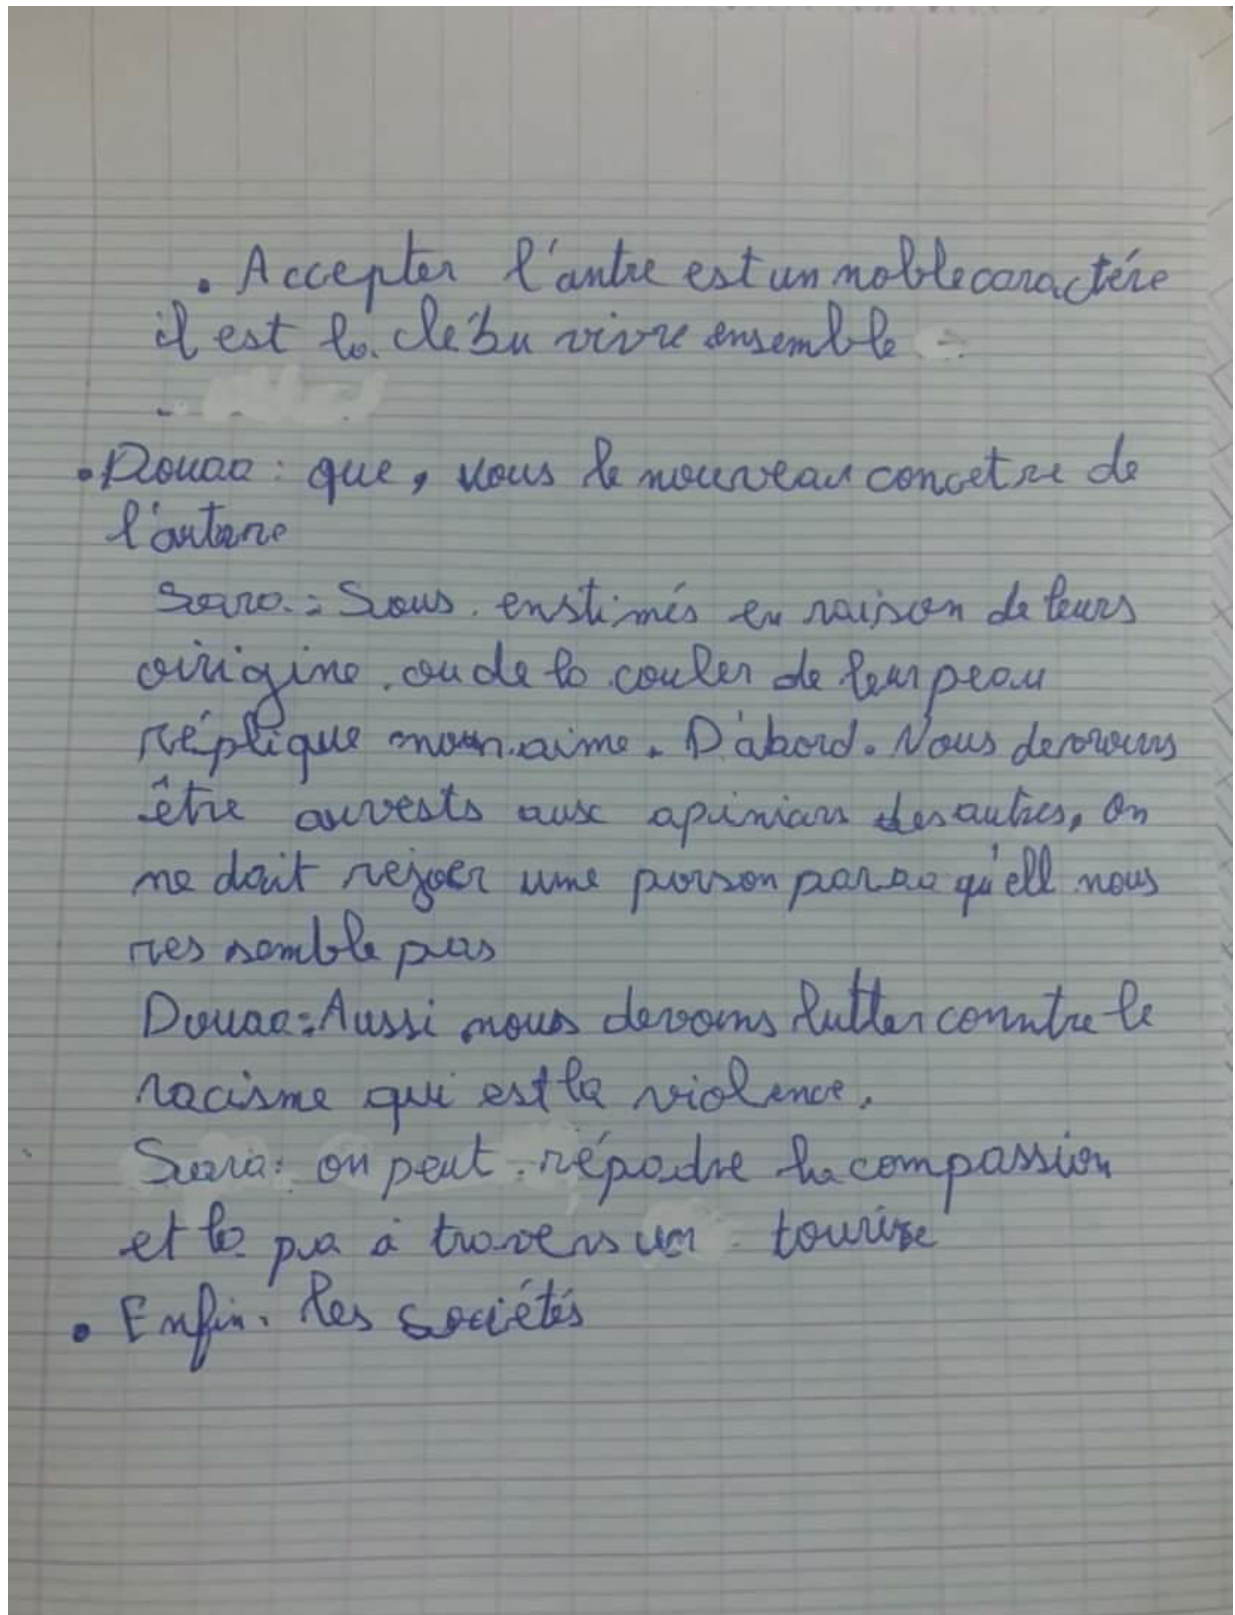 . Accepter l'antre est un noble caractére
il est la clé bu vivre ensemble
• Douaa : que, vous le nouveau concetre de
l'autere
Sara : Sous enstimés en raison de leurs
oirigine ou de la couler de leur peau
réplique mon aime. D'abord. Nous devrouns
être ouvests aux apinians des autres, on
ne doit rejoer une porson parae qu'ell nous
res semble pas
Douaa : Aussi nous devoins lutter conntre le
racisme qui est la violence.
Sara : on peut répadre la compassion
et la pa à travers un tourise
• Enfin. les sociétés